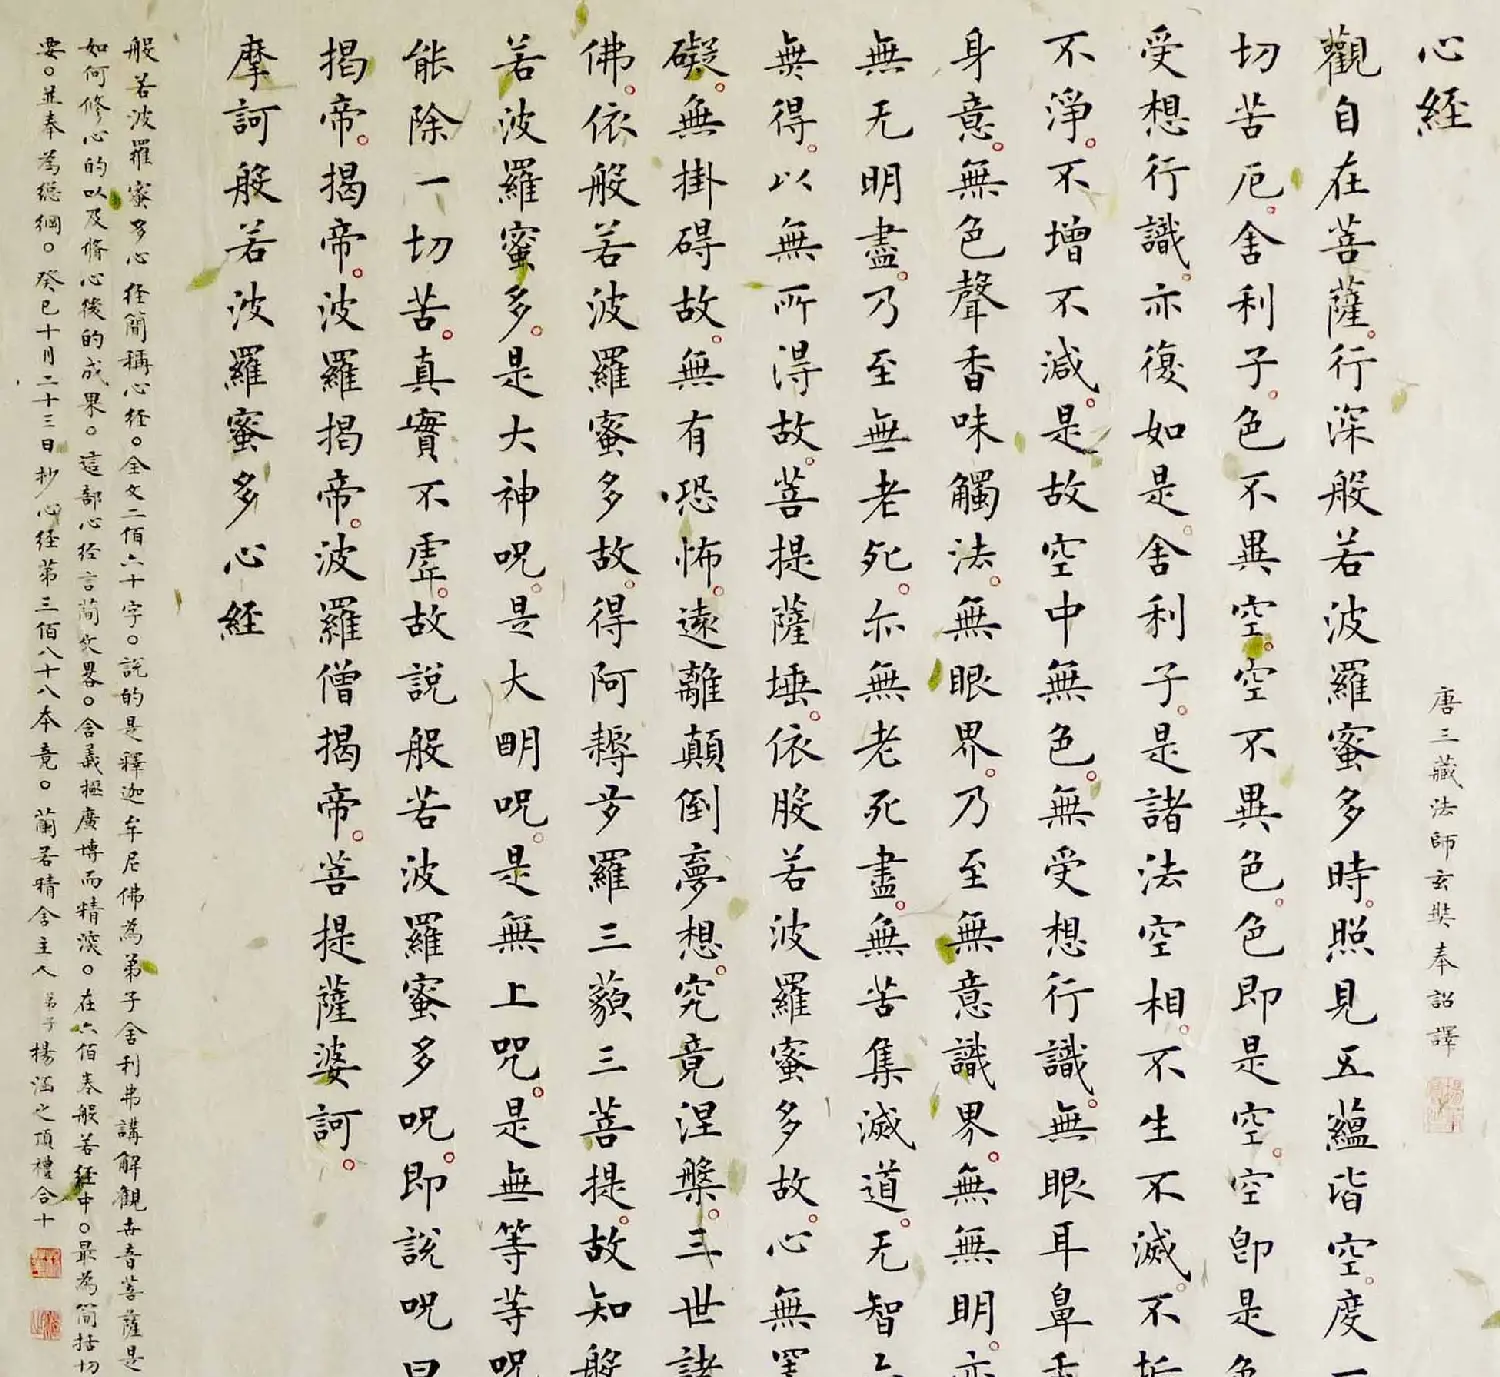 心経
唐三藏法師玄奘奉詔譯
觀自在菩薩。行深般若波羅蜜多時。照見五蘊皆空。度一
切苦厄。舍利子。色不異空。空不異色。色即是空。空即是色
受想行識。亦復如是。舍利子。是諸法空相。不生不滅。不垢
不淨。不增不減。是故空中無色。無受想行識。無眼耳鼻舌
身意。無色聲香味觸法。無眼界。乃至無意識界。無無明。亦
無无明盡。乃至無老死。亦無老死盡。無苦集滅道。无智亦
無得。以無所得故。菩提薩埵。依般若波羅蜜多故。心無罣
礙。無掛碍故。無有恐怖。遠離顛倒夢想。究竟涅槃。三世諸
佛。依般若波羅蜜多故。得阿耨多羅三藐三菩提。故知般
若波羅蜜多。是大神呪。是大明呪。是無上呪。是無等等呪
能除一切苦。真實不虛。故說般若波羅蜜多呪。即說呪曰
揭帝。揭帝。波羅揭帝。波羅僧揭帝。菩提薩婆訶。
摩訶般若波羅蜜多心経
般若波羅蜜多心径簡稱心径。全文二佰六十字。說的是釋迦牟尼佛為弟子舍利弗講解觀世音菩薩是
如何修心的以及脩心後的成果。這部心経言簡文畧。含義極廣博而精深。在六佰卷般若経中。最為簡括切
要。並奉為總綱。癸巳十月二十三日抄心经第三佰八十八本竟。蘭若精舍主人弟子楊涵之頂禮合十